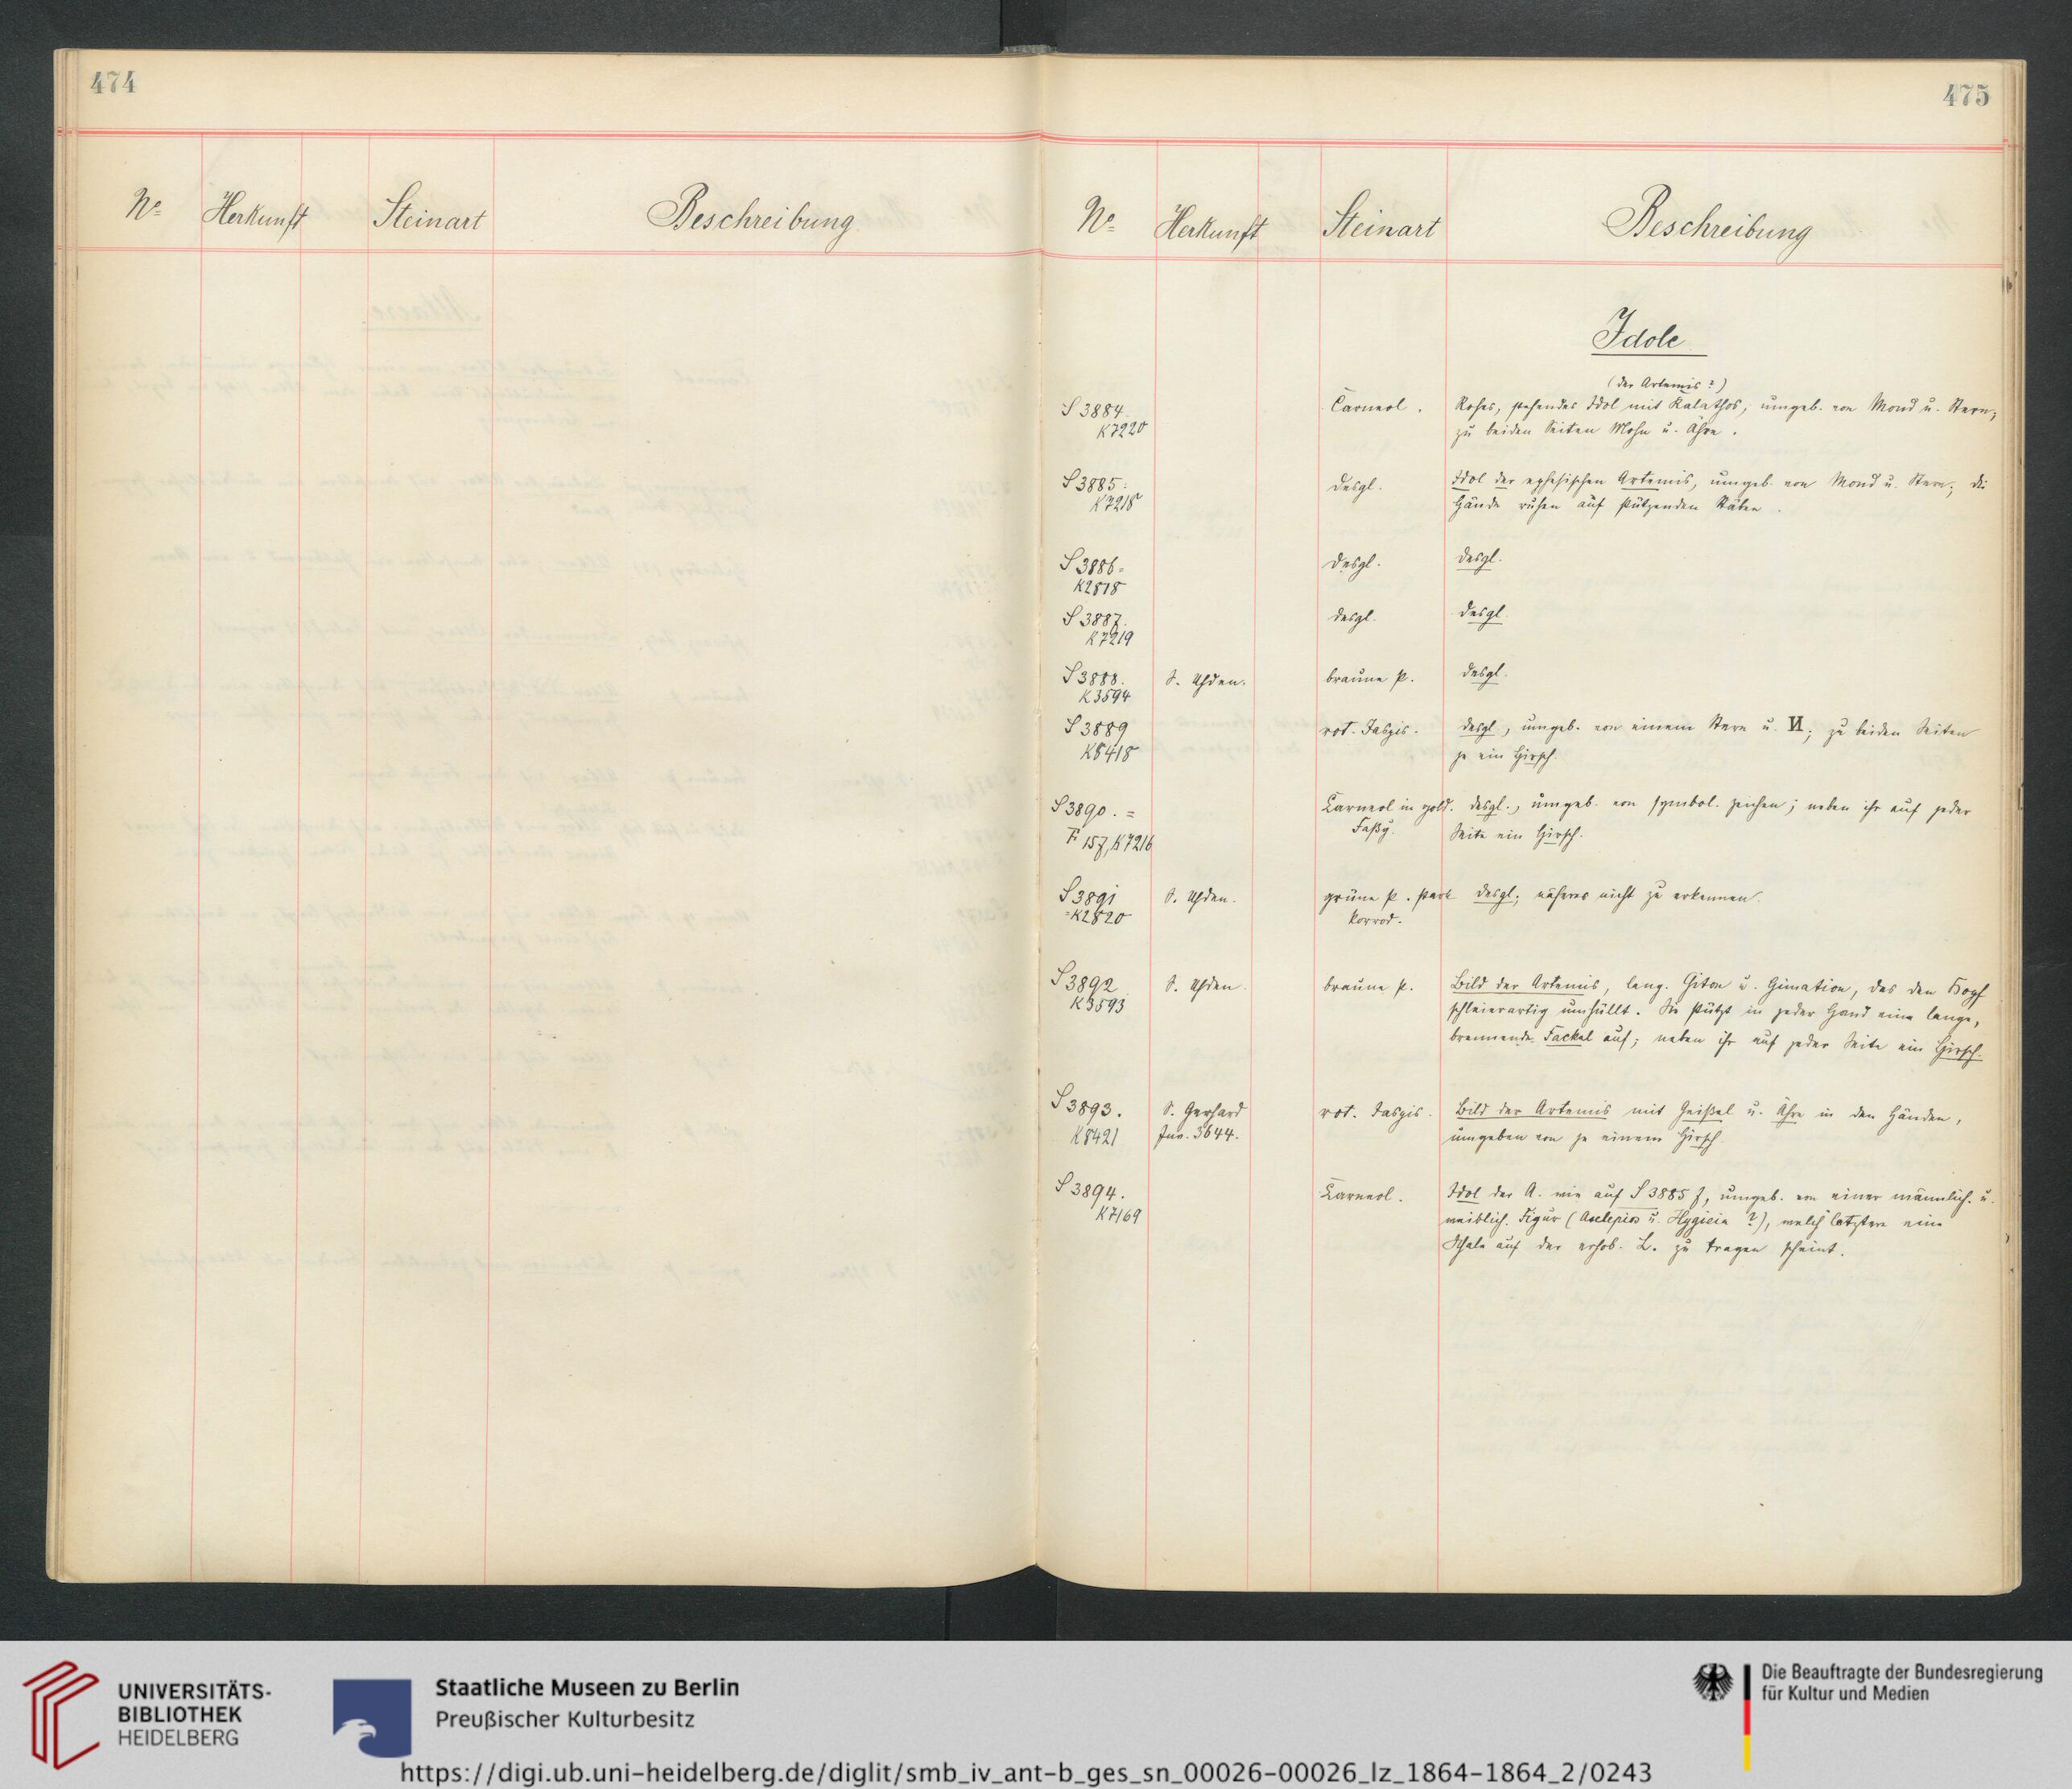 474
475
No Herkunft Steinart Beschreibung
No Herkunft Steinart Beschreibung
Idole
(der Artemis?)
S 3884. Carneol. Rohes, stehendes Idol mit Kalathos, umgeb. von Mond u. Stern;
K7220 zu beiden Seiten Mohn u. Ähre.
S 3885. desgl. Idol der ephesischen Artemis, umgeb. von Mond u. Stern; die
K7218 Hände ruhen auf stützenden Stäben.
S 3886. desgl. desgl.
K2818
S 3887. desgl. desgl.
K7219
S 3888. S. Uhden. braune P. desgl.
K3594
S 3889 rot. Jaspis. desgl., umgeb. von einem Stern u. И; zu beiden Seiten
K8418 je ein Hirsch.
S 3890. = Carneol in gold. desgl., umgeb. von symbol. Zeichen; neben ihr auf jeder
F 157, K7216 Faßg. Seite ein Hirsch.
S 3891 S. Uhden. grüne P. stark desgl; näheres nicht zu erkennen.
=K2820 korrod.
S 3892 S. Uhden braune P. Bild der Artemis, lang. Chiton u. Himation, das den Kopf
K3593 schleierartig umhüllt. Sie stützt in jeder Hand eine lange,
brennende Fackel auf; neben ihr auf jeder Seite ein Hirsch.
S 3893. S. Gerhard rot. Jaspis. Bild der Artemis mit Geißel u. Ähre in den Händen,
K8421 Inv. 3644. umgeben von je einem Hirsch.
S 3894. Carneol. Idol der A. wie auf S 3885 f, umgeb. von einer männlich. u.
K7169 weiblich. Figur (Asclepios u. Hygieia?), welch letztere eine
Schale auf der erhob. L. zu tragen scheint.
UNIVERSITÄTS-
BIBLIOTHEK
HEIDELBERG
Staatliche Museen zu Berlin
Preußischer Kulturbesitz
Die Beauftragte der Bundesregierung
für Kultur und Medien
https://digi.ub.uni-heidelberg.de/diglit/smb_iv_ant-b_ges_sn_00026-00026_lz_1864-1864_2/0243